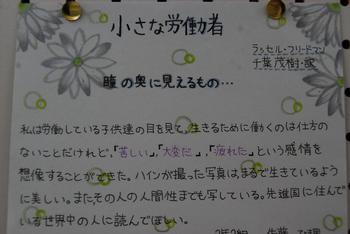 小さな労働者
ラッセル・フリードマン
千葉茂樹・訳
瞳の奥に見えるもの…
私は労働している子供達の目を見て、生きるために働くのは仕方の
ないことだけれど、「苦しい」、「大変だ」、「疲れた」という感情を
想像することができた。ハインが撮った写真は、まるで生きているよう
に美しい。またその人の人間性までも写している。先進国に住んで
いる世界中の人に読んでほしい。
2年2組